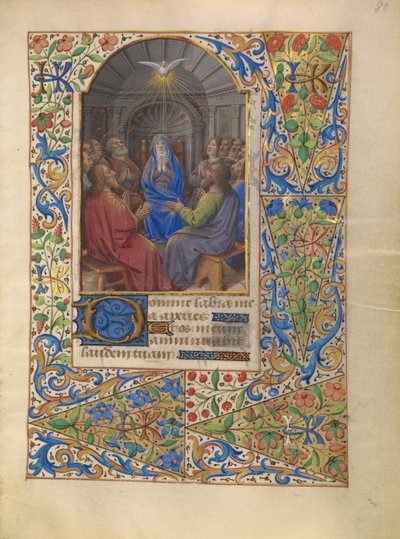 80
Domine labia me
a aperies
Et os meum
annuntiabit
laudem tuam